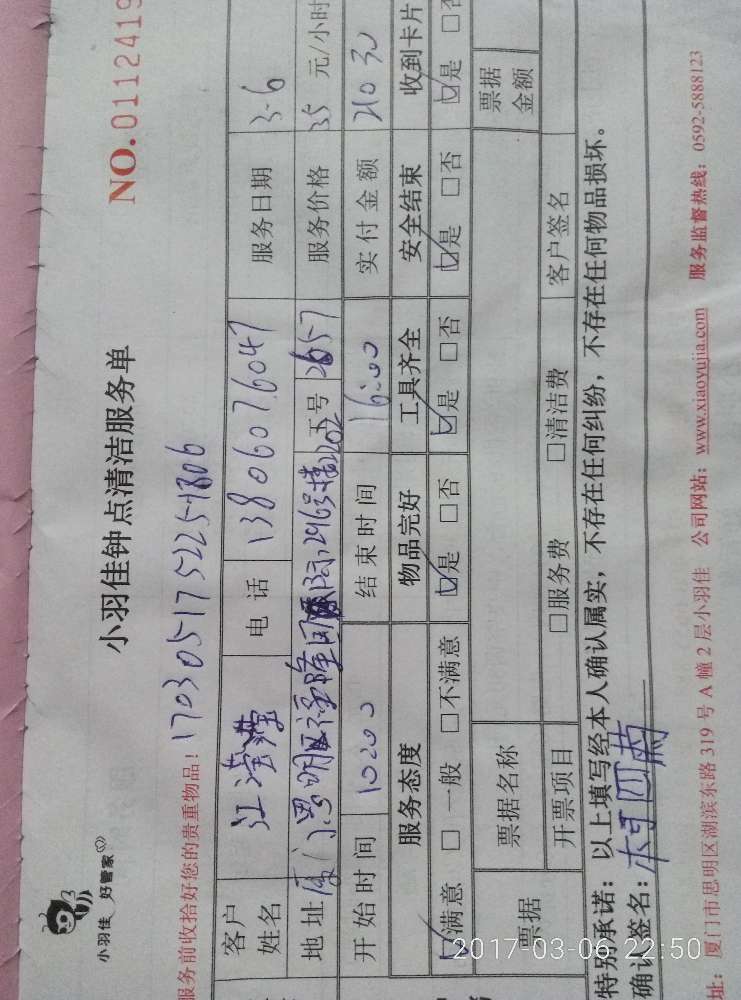 小羽佳 好管家
小羽佳钟点清洁服务单
NO.0112419
服务前收拾好您的贵重物品！1703051752254806
客户姓名 江滢滢 电话 13806076047 服务日期 3-6
地址 厦门思明区禾隆国际296号楼2202 工号 2657 服务价格 35 元/小时
开始时间 10:00 结束时间 16:00 实付金额 210元
服务态度 物品完好 工具齐全 安全结束 收到卡片
☑满意 □一般 □不满意 ☑是 □否 ☑是 □否 ☑是 □否 ☑是 □否
票据 票据名称 票据金额
开票项目 □服务费 □清洁费 客户签名
特别承诺：以上填写经本人确认属实，不存在任何纠纷，不存在任何物品损坏。
确认签名：柯四菊
址：厦门市思明区湖滨东路 319 号 A 幢 2 层小羽佳 公司网站：www.xiaoyujia.com 服务监督热线：0592-5888123
2017-03-06 22:50